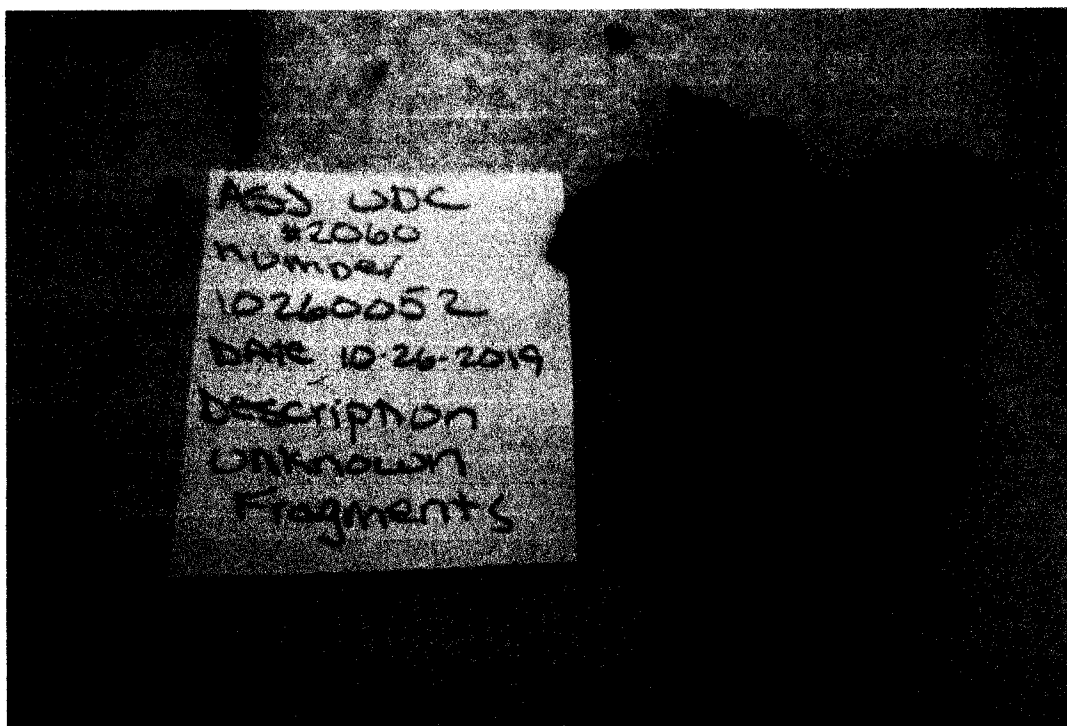 ASJ UDC
#2060
number
10260052
DATE 10-26-2019
Description
unknown
Fragments